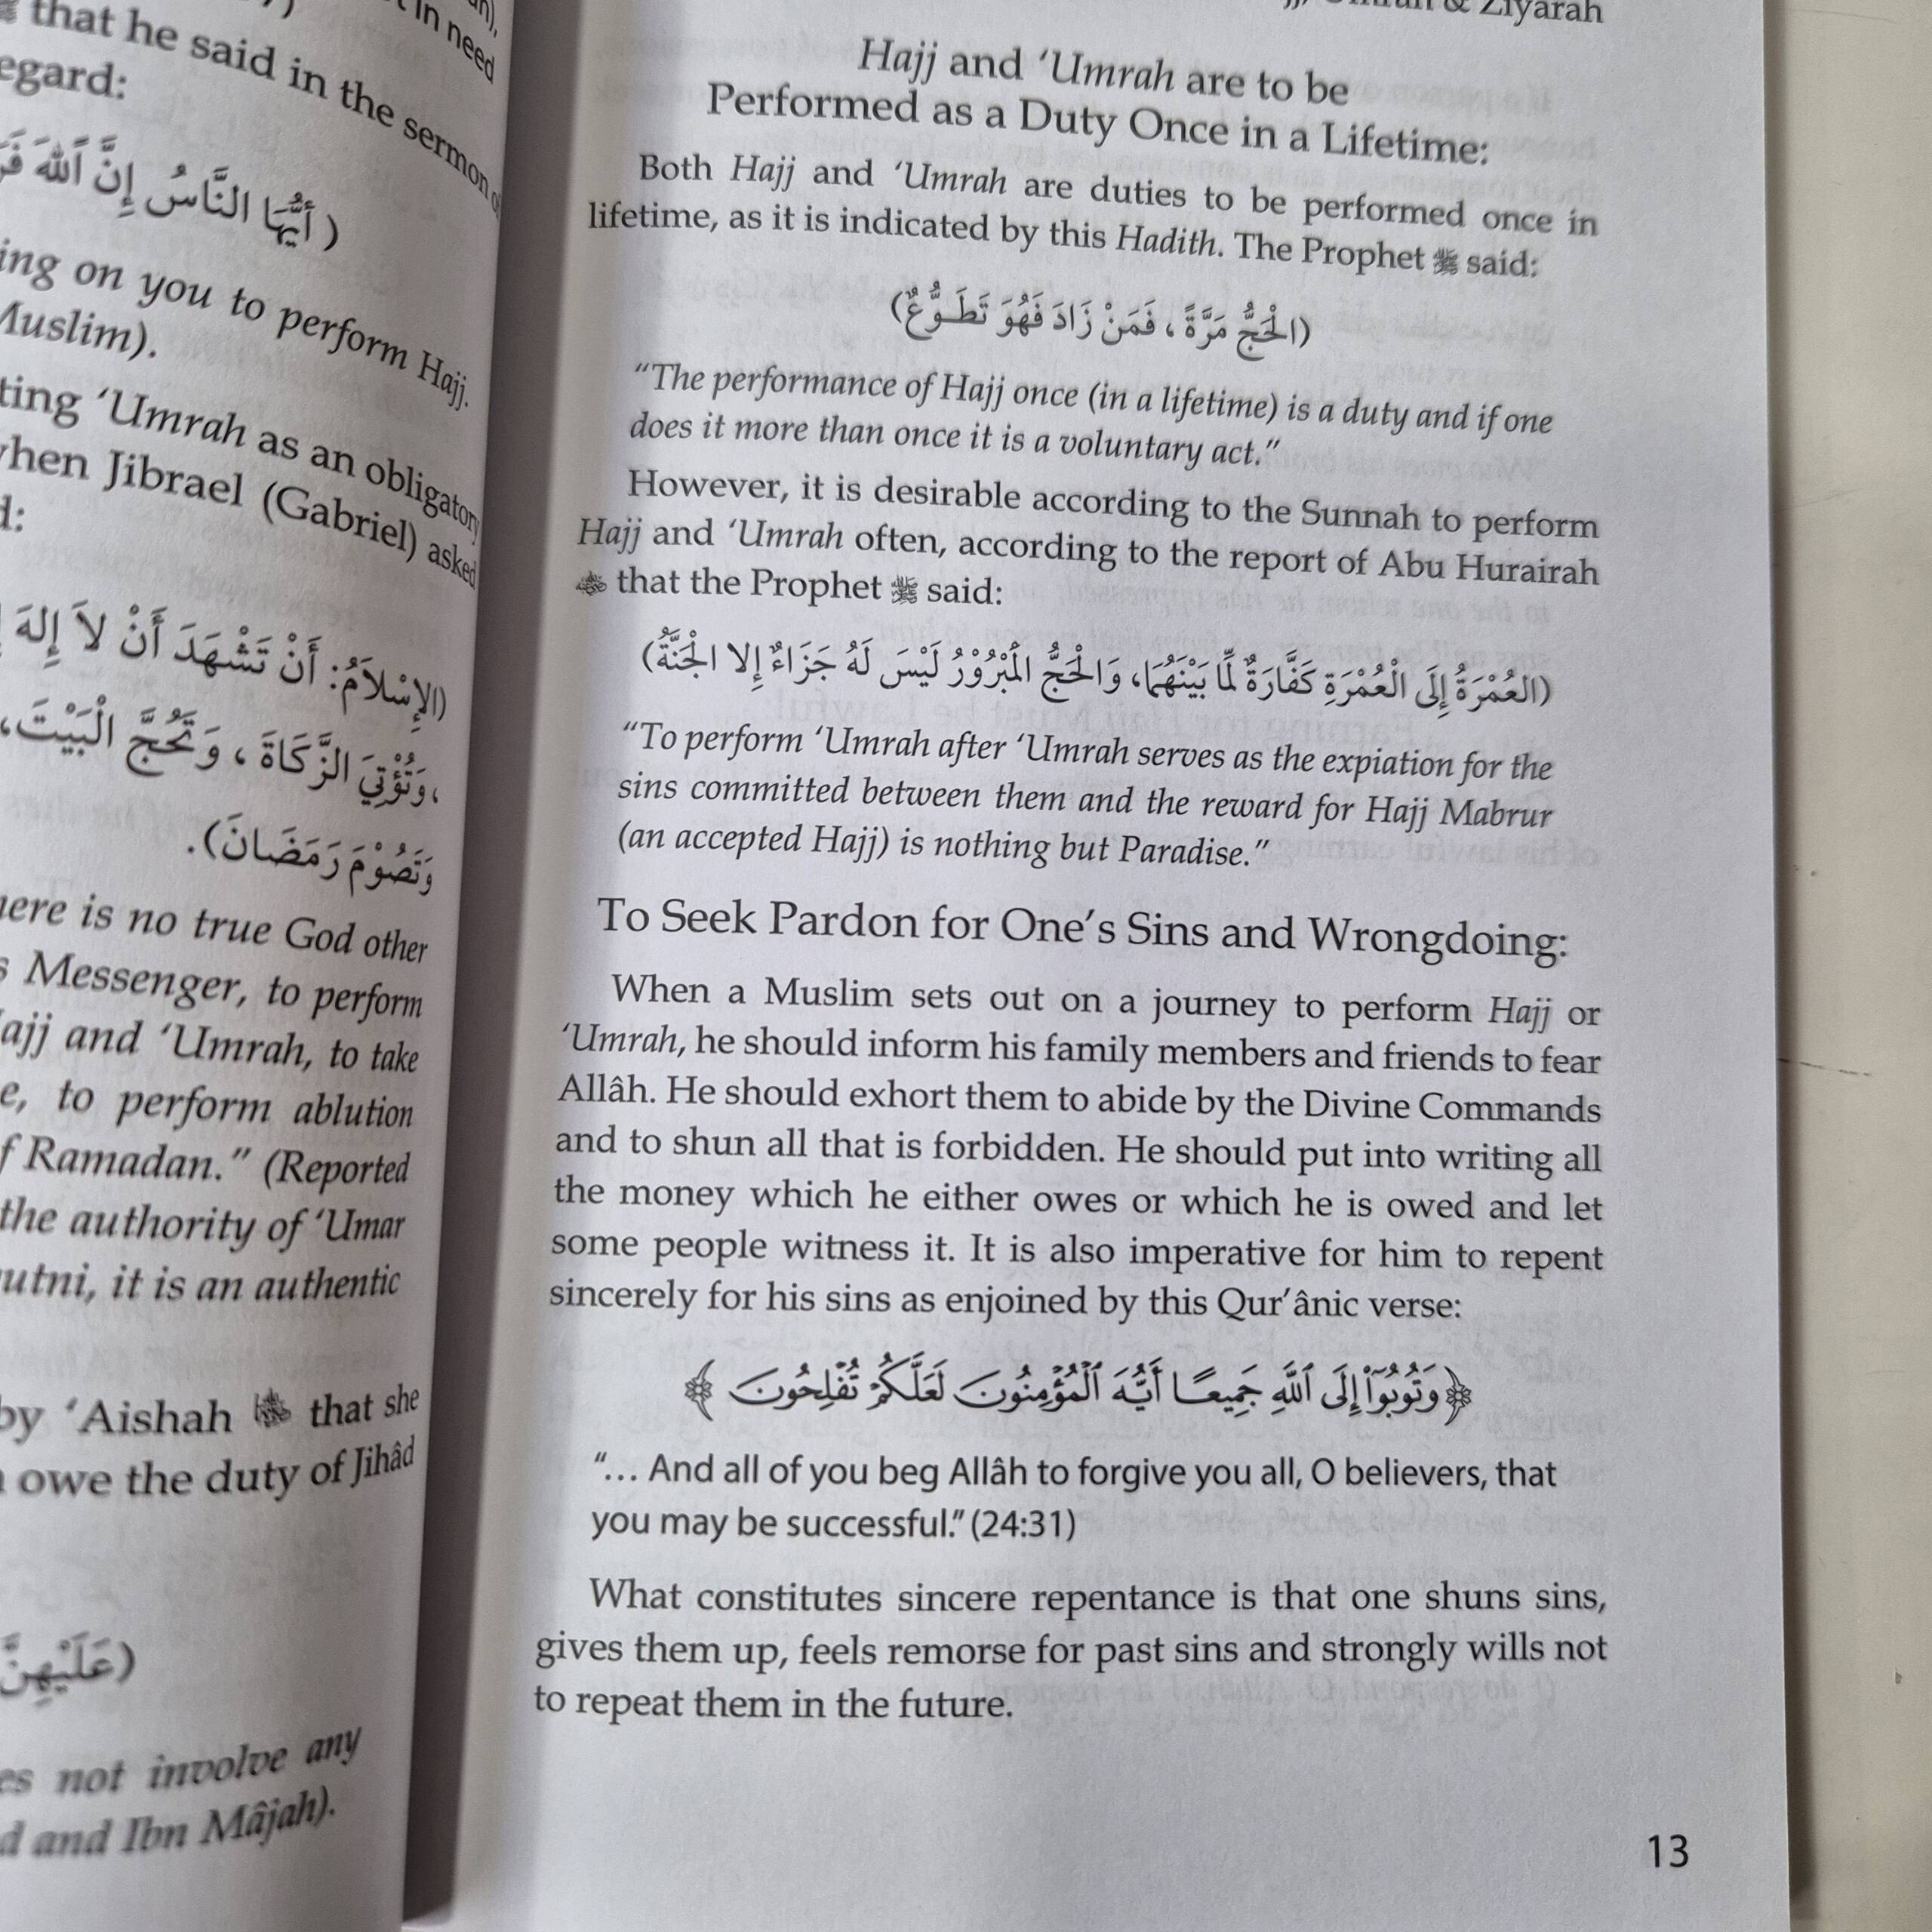 that he said in the sermon
egard:
( أَيُّهَا النَّاسُ إِنَّ اللهَ
ing on you to perform Hajj.
Muslim).
ting ‘Umrah as an obligatory
when Jibrael (Gabriel) asked
d:
(الإِسْلاَمُ: أَنْ تَشْهَدَ أَنْ لاَ إِلهَ
،وَتُؤْتِيَ الزَّكَاةَ ، وَتَحُجَّ الْبَيْتَ،
وَتَصُوْمَ رَمَضَانَ).
here is no true God other
s Messenger, to perform
Hajj and ‘Umrah, to take
e, to perform ablution
f Ramadan.” (Reported
the authority of ‘Umar
utni, it is an authentic
by ‘Aishah that she
owe the duty of Jihâd
(عَلَيْهِنَّ
es not involve any
d and Ibn Mâjah).
& Ziyarah
Hajj and ‘Umrah are to be
Performed as a Duty Once in a Lifetime:
Both Hajj and ‘Umrah are duties to be performed once in
lifetime, as it is indicated by this Hadith. The Prophet ﷺ said:
(الْحَجُّ مَرَّةً ، فَمَنْ زَادَ فَهُوَ تَطَوُّعٌ)
“The performance of Hajj once (in a lifetime) is a duty and if one
does it more than once it is a voluntary act.”
However, it is desirable according to the Sunnah to perform
Hajj and ‘Umrah often, according to the report of Abu Hurairah
that the Prophet ﷺ said:
(العُمْرَةُ إِلَى الْعُمْرَةِ كَفَّارَةٌ لِّمَا بَيْنَهُمَا، وَالْحَجُّ الْمَبْرُوْرُ لَيْسَ لَهُ جَزَاءٌ إِلا الْجَنَّةُ)
“To perform ‘Umrah after ‘Umrah serves as the expiation for the
sins committed between them and the reward for Hajj Mabrur
(an accepted Hajj) is nothing but Paradise.”
To Seek Pardon for One’s Sins and Wrongdoing:
When a Muslim sets out on a journey to perform Hajj or
‘Umrah, he should inform his family members and friends to fear
Allâh. He should exhort them to abide by the Divine Commands
and to shun all that is forbidden. He should put into writing all
the money which he either owes or which he is owed and let
some people witness it. It is also imperative for him to repent
sincerely for his sins as enjoined by this Qur’ânic verse:
﴿وَتُوبُوٓا۟ إِلَى ٱللَّهِ جَمِيعًا أَيُّهَ ٱلْمُؤْمِنُونَ لَعَلَّكُمْ تُفْلِحُونَ﴾
“... And all of you beg Allâh to forgive you all, O believers, that
you may be successful.” (24:31)
What constitutes sincere repentance is that one shuns sins,
gives them up, feels remorse for past sins and strongly wills not
to repeat them in the future.
13